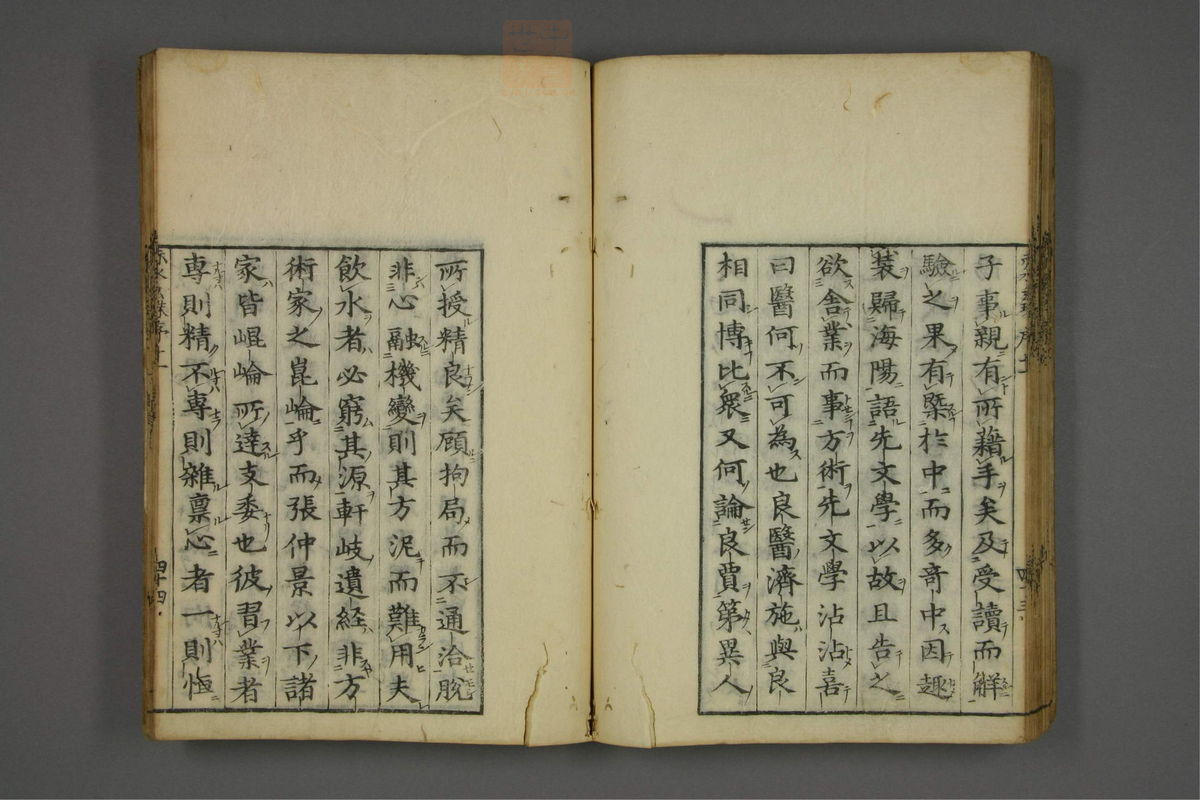 子事親有所藉手矣及受讀而解
驗之果有槩於中而多奇中因趣
装歸海陽語先文學以故且告之
欲舍業而事方術先文學沾沾喜
曰醫何不可為也良醫濟施與良
相同博比衆又何論良賈第異人
所授精良矣顧拘局而不通洽脫
非心融機變則其方泥而難用夫
飲水者必窮其源軒岐遺経非方
術家之崑崘乎而張仲景以下諸
家皆崐崘所逹支委也彼習業者
専則精不専則雜禀心者一則恒
四十四